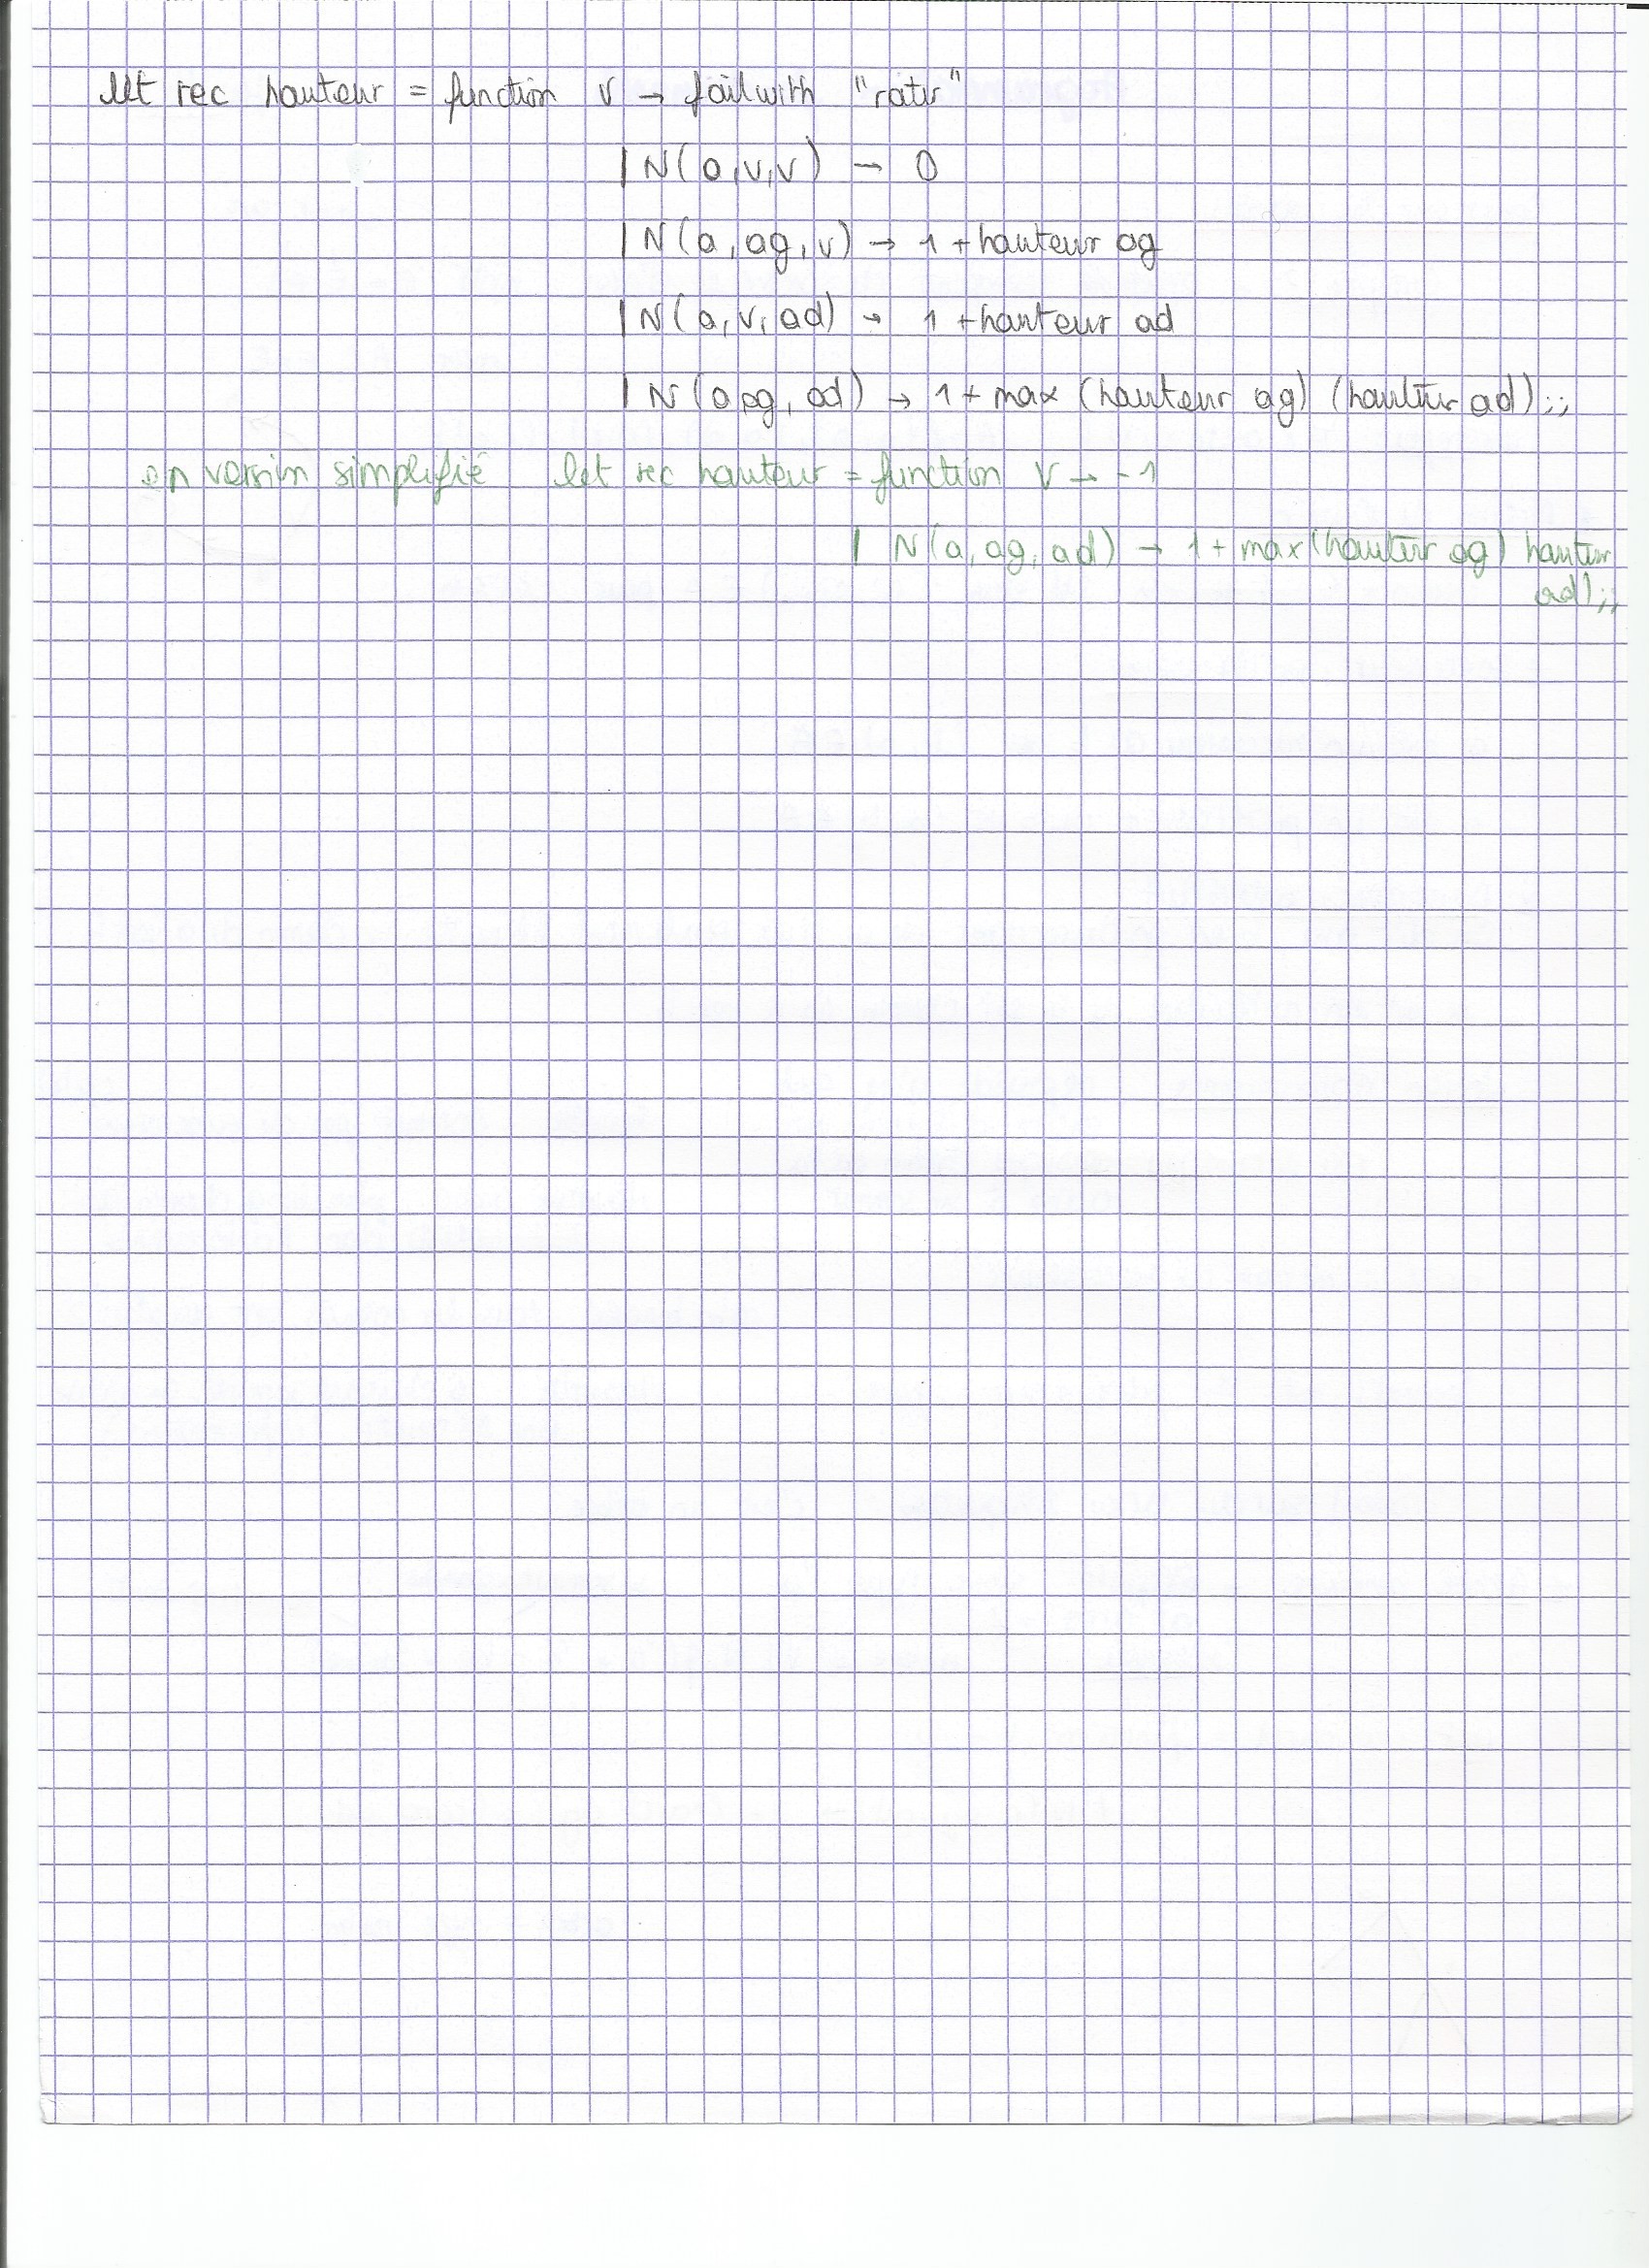 let rec hauteur = function V → failwith "rater"
| N(a,V,V) → 0
| N(a, ag, V) → 1 + hauteur ag
| N(a, V, ad) → 1 + hauteur ad
| N(a, ag, ad) → 1 + max (hauteur ag) (hauteur ad);;
en version simplifié let rec hauteur = function V → -1
| N(a, ag, ad) → 1 + max (hauteur ag) hauteur
ad);;